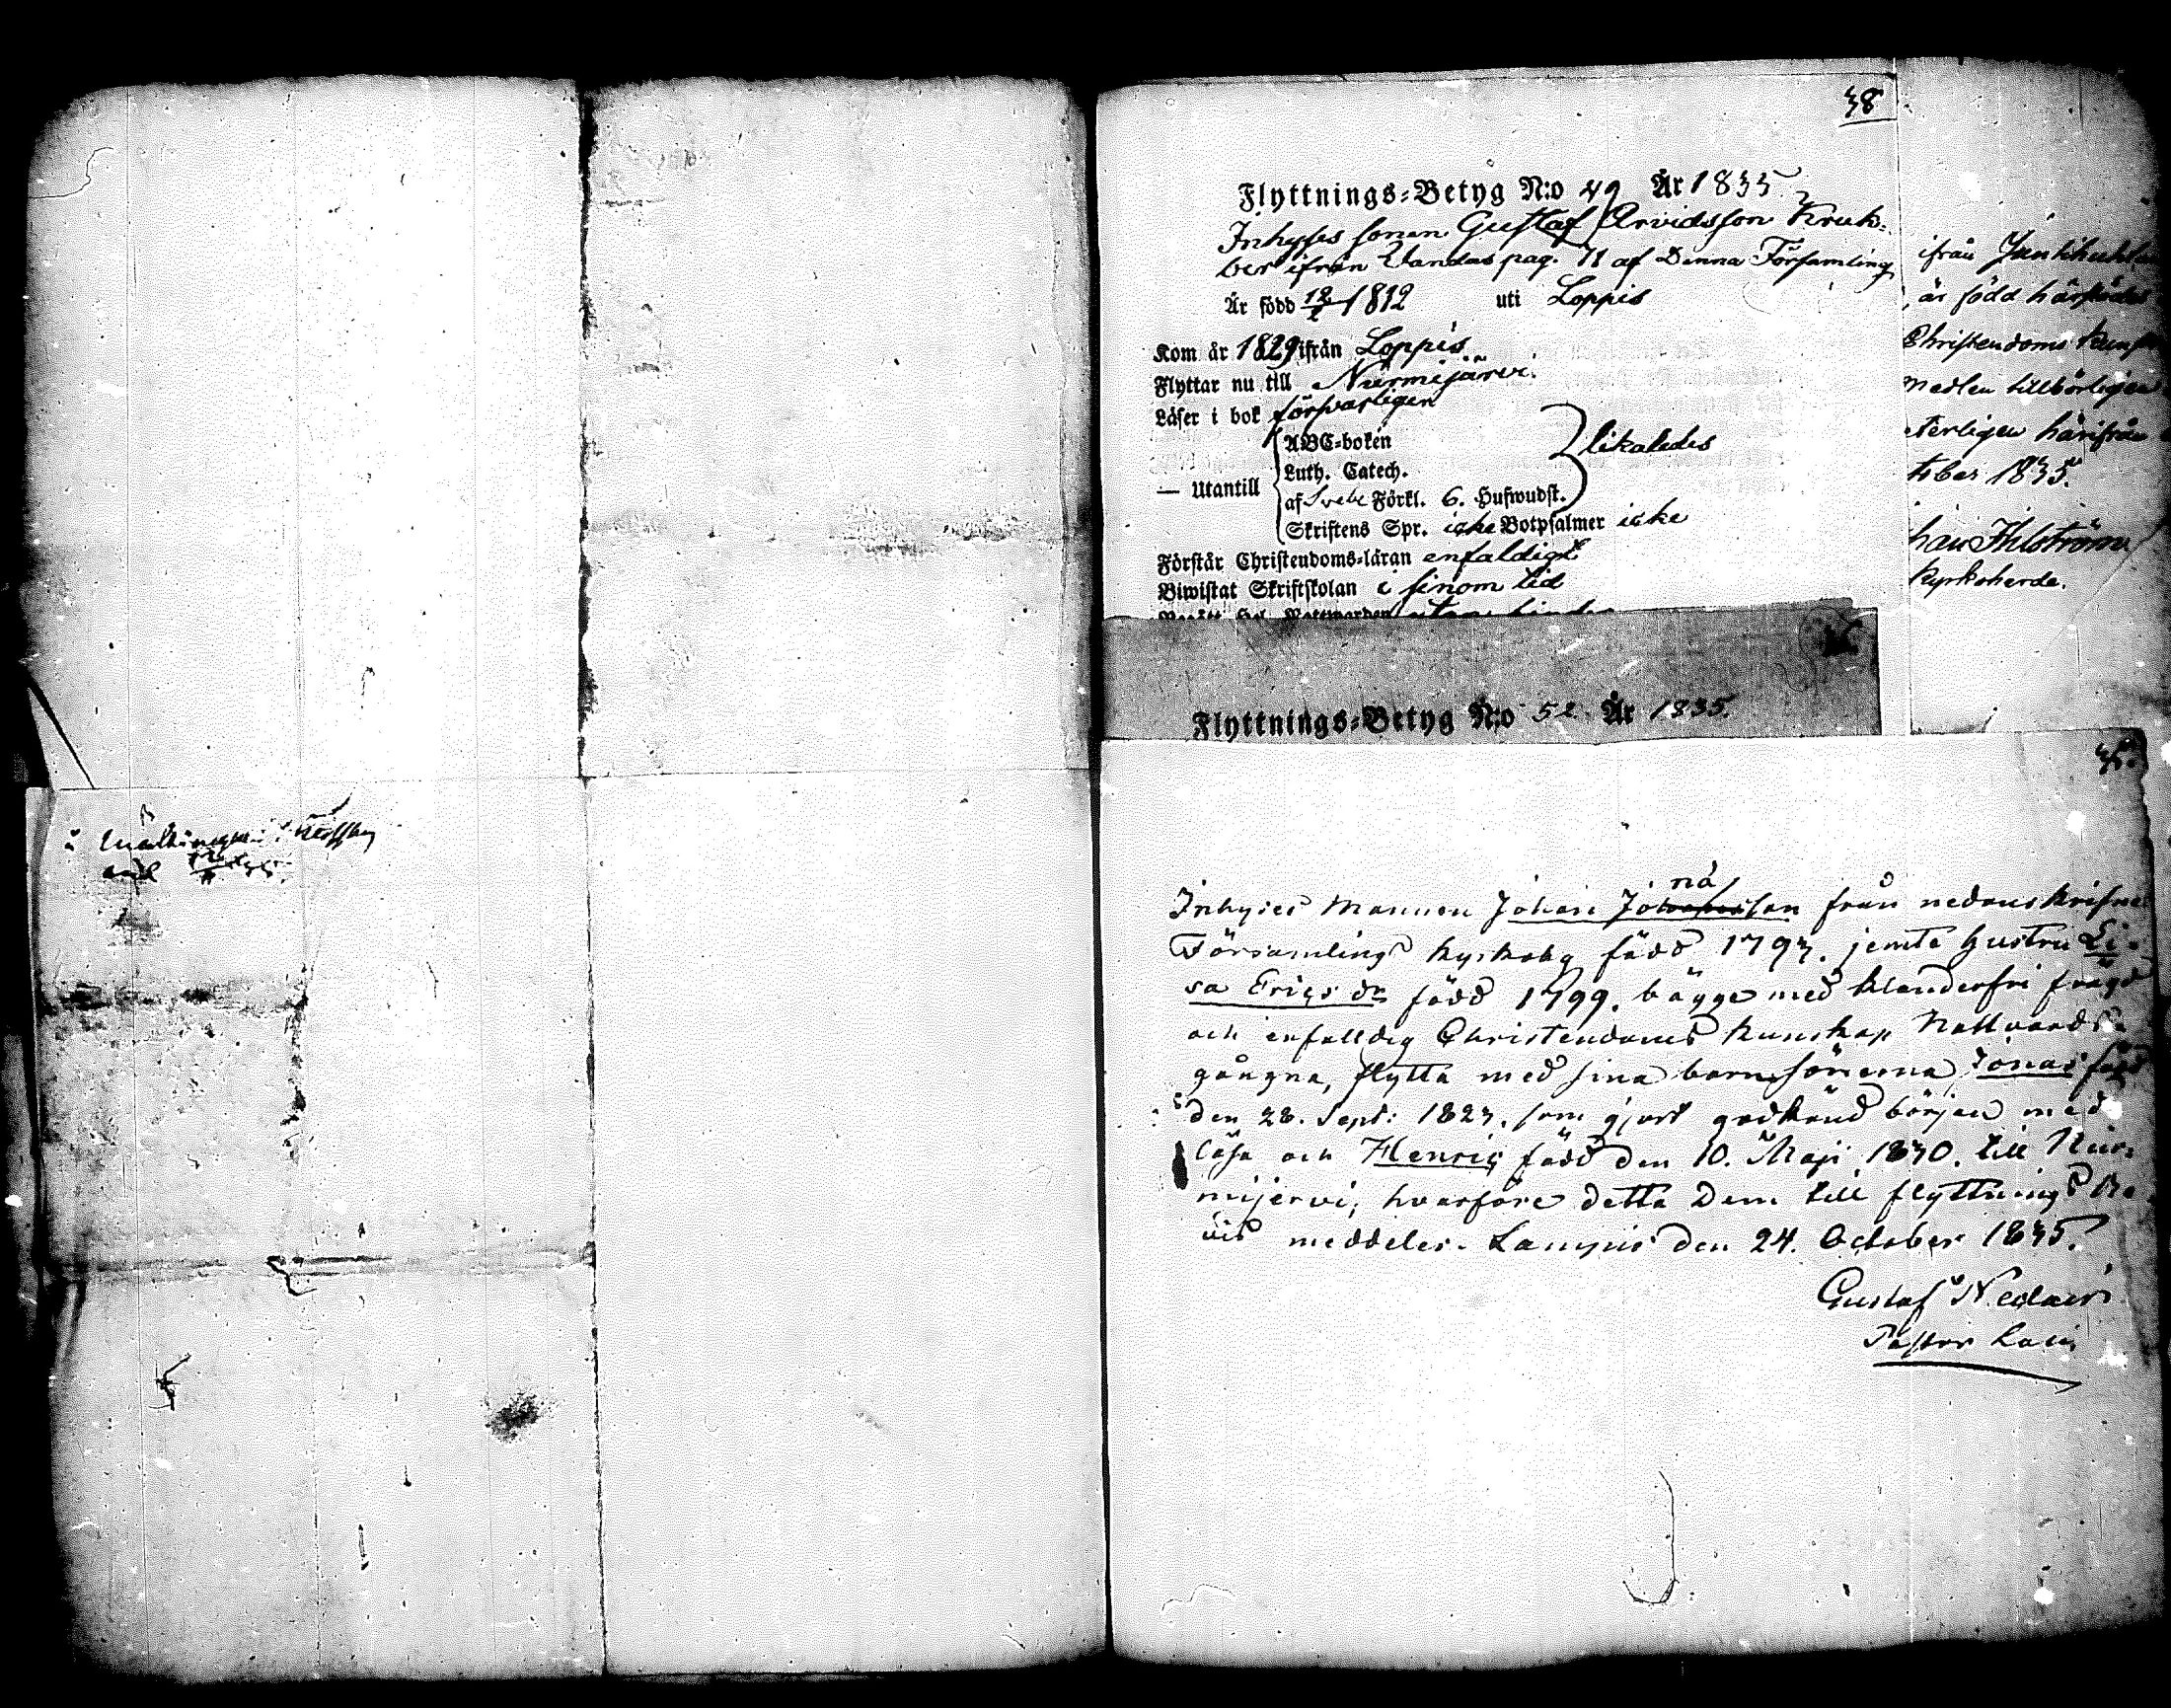 38
Flyttnings-Betyg N:o 49 År 1835
Inhyses sonen Gustaf Arvidsson Kruk-
ber ifrån Vandas pag. 71 af Denna Församling
Är född 12/2 1812 uti Loppis
Kom år 1829 ifrån Loppis
Flyttar nu till Nurmijärvi.
Läser i bok försvarligen
— Utantill
ABC-boken
Luth. Catech.
likaledes
af Svebe Förkl. 6. Hufwudst.
Skriftens Spr. icke Botpsalmer icke
Förstår Christendoms-läran enfaldigt
Biwistat Skriftskolan i sinom tid
ifrån
är född härstädes
Christendoms kunsk
medlen tillbörligen
terligen härifrån
tober 1835.
han Ihlström
Kyrkoherde.
Flyttnings-Betyg N:o 52 År 1835.
Inhyses Mannen Johan Jo nä son från nedanskrifne
Församlings Kyrkoby född 1793. jemte hustru Li-
sa Erics dr född 1799. bägge med klanderfri frägd
och enfalldig Christendoms kunskap Nattvards-
gångna, flytta med sina barn sönerna Jonas född
den 28. Sept: 1823. som gjort godkänd början med
läsa och Henric född den 10. Maji 1830. till Nur-
mijervi, hvarföre detta Dem till flyttnings Be-
vis meddeles. Lampis den 24. October 1835.
Gustaf
Pastor Loci